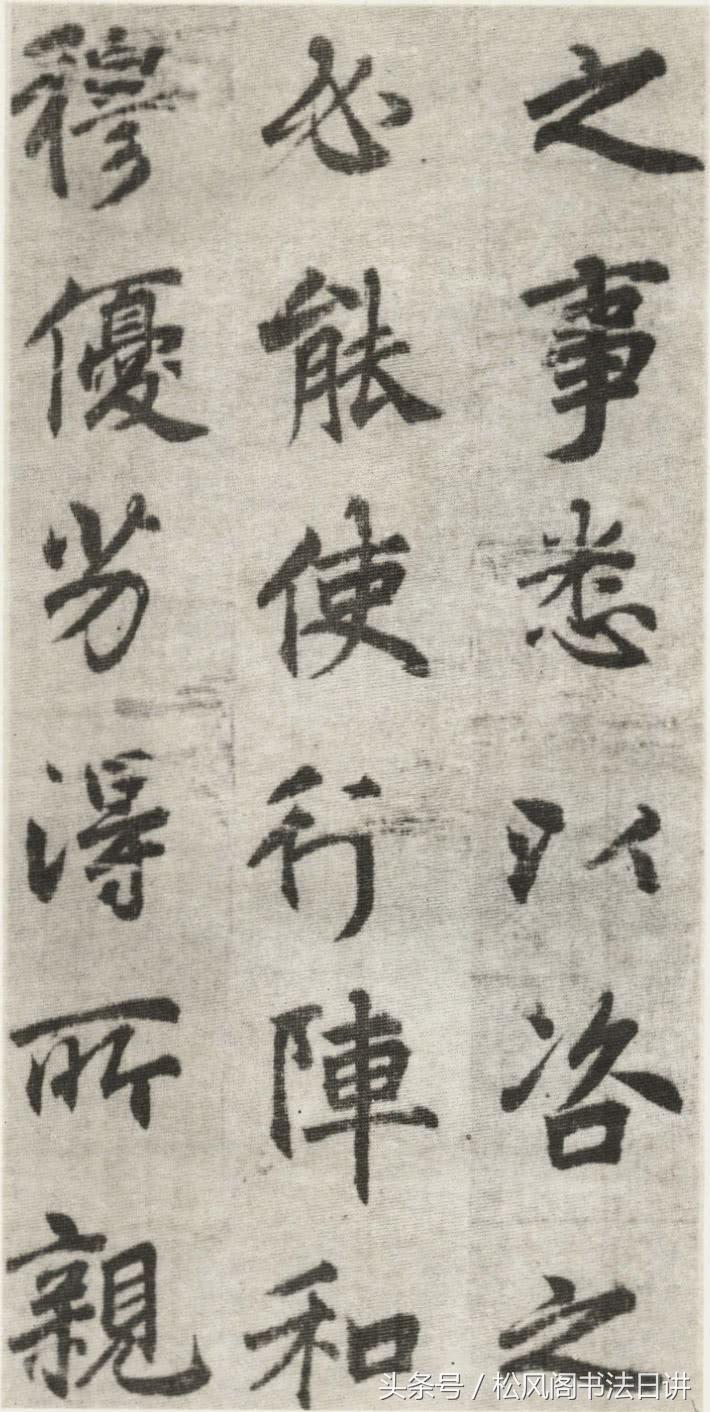 之事悉以咨之
必能使行陣和
穆優劣得所親
头条号／松风阁书法日讲